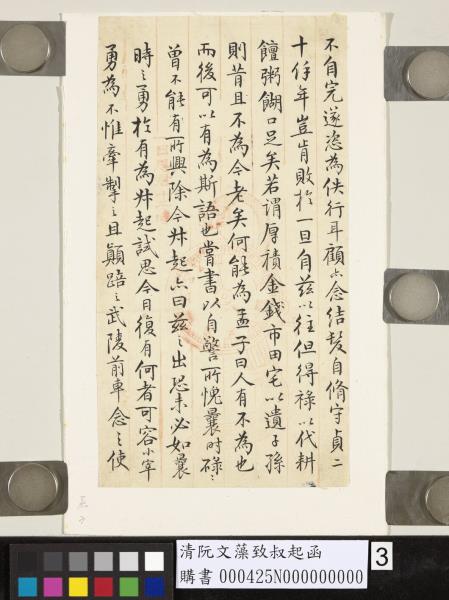 不自完遂恣為佚行耳顧亦念結髮自脩守貞二
十年豈肯敗於一旦自茲以往但得祿以代耕
饘粥餬口足矣若謂厚積金錢市田宅以遺子孫
則昔且不為今老矣何能為孟子曰人有不為也
而後可以有為斯語也嘗書以自警所愧曩時碌〻
曾不能有所興除今叔起亦曰茲之出恐未必如曩
時之勇於有為叔起試思今日復有何者可容小宰
勇為不惟牽掣之且顛踣之武陵前車念之使
清阮文藻致叔起函
購書 000425N000000000
3